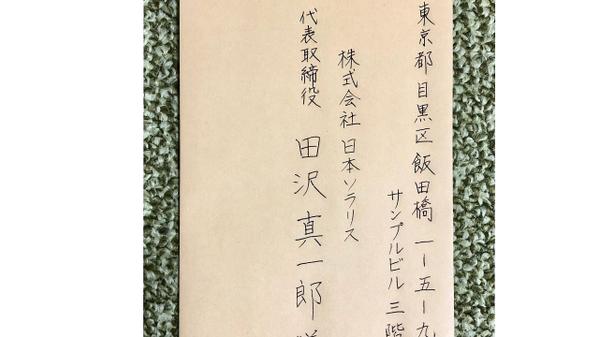 東京都目黒区飯田橋一ー五ー九
サンプルビル三階
株式会社日本ソラリス
代表取締役 田沢真一郎